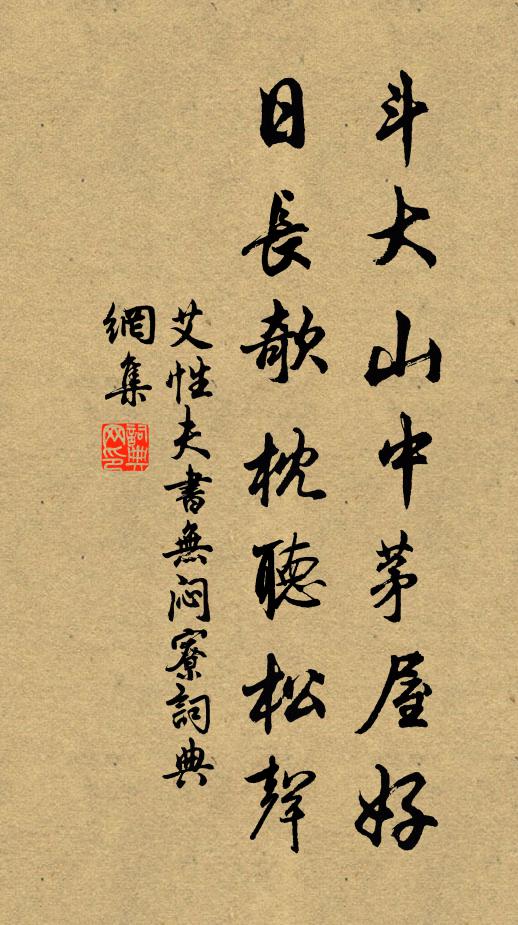 斗大山中茅屋好
日長欹枕聽松聲
艾性夫書無悶寮詞典
網集
詞典網印